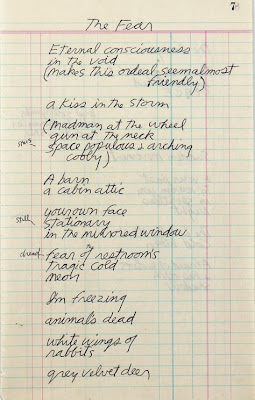 7
The Fear
Eternal consciousness
in the void
(makes this ordeal seem almost
friendly)
a Kiss in the storm
(Madman at the wheel
gun at the neck
space populous & arching
coolly)
A barn
a cabin attic
your own face
still
stationary
in the mirrored window
dread
fear of restroom's
tragic cold
neon
I'm freezing
animals dead
white wings of
rabbits
grey velvet deer